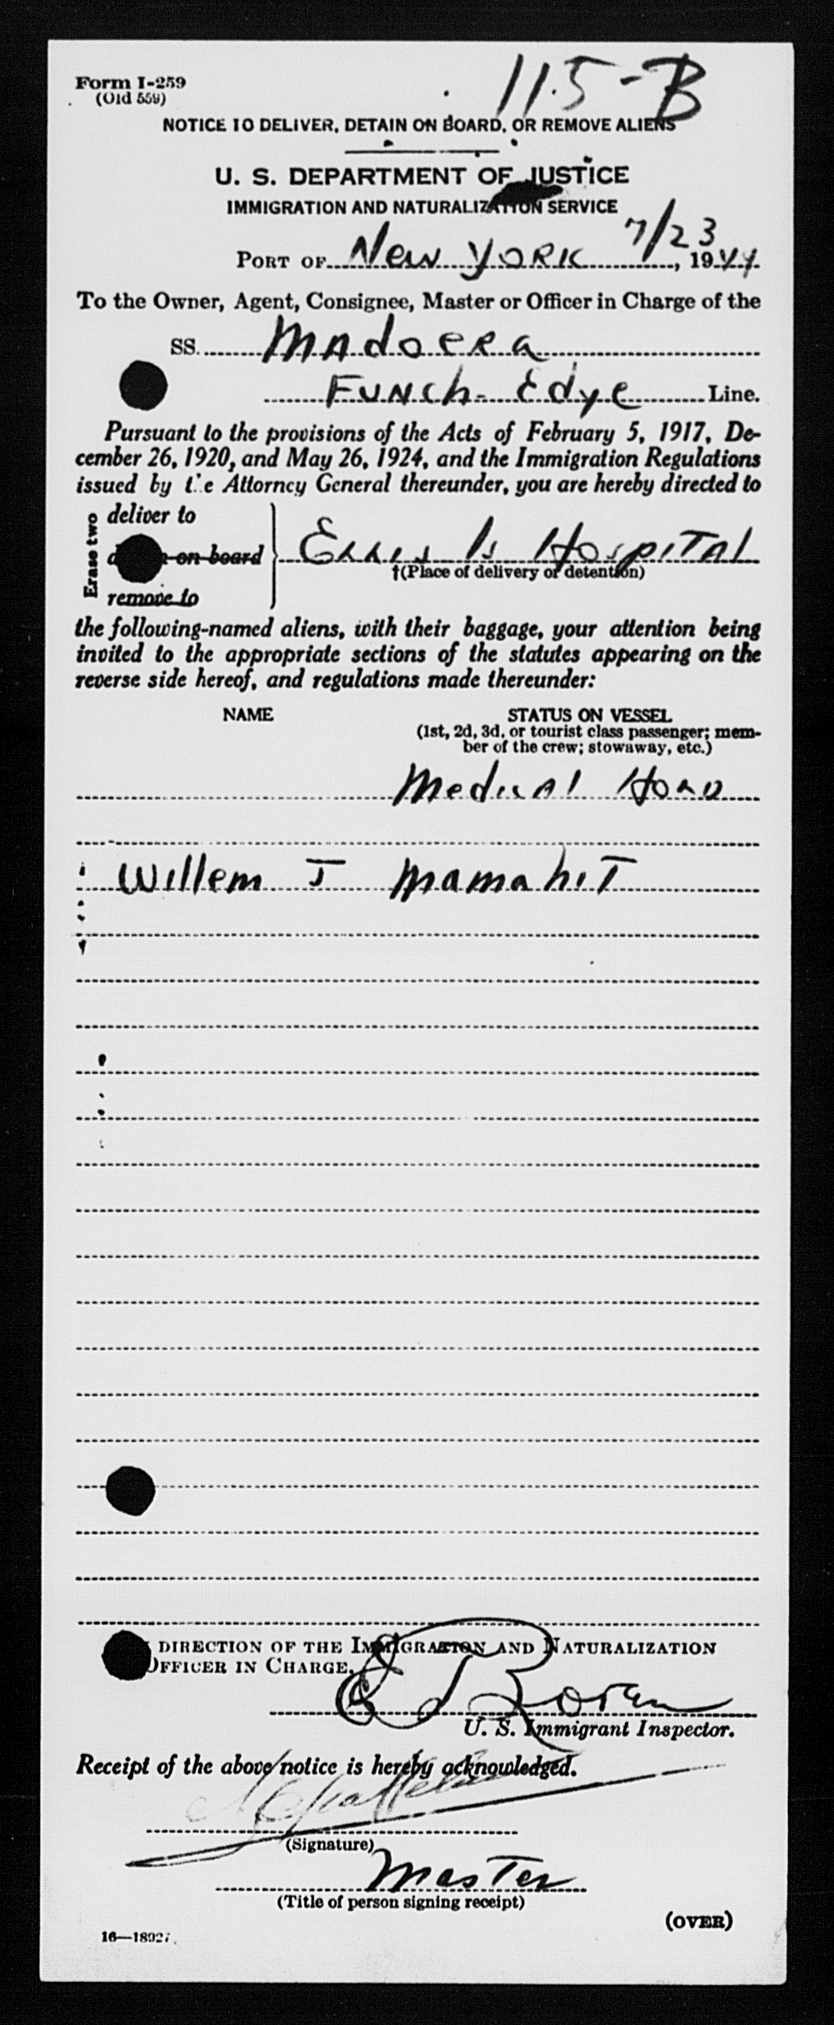 Form I-259
(Old 559)
115-B
NOTICE TO DELIVER, DETAIN ON BOARD, OR REMOVE ALIENS
U. S. DEPARTMENT OF JUSTICE
IMMIGRATION AND NATURALIZATION SERVICE
PORT OF New York 7/23, 1944
To the Owner, Agent, Consignee, Master or Officer in Charge of the
SS. Madoera
Funch-Edye Line.
Pursuant to the provisions of the Acts of February 5, 1917, De-
cember 26, 1920, and May 26, 1924, and the Immigration Regulations
issued by the Attorney General thereunder, you are hereby directed to
Erase two
deliver to
on board
remove to
Ellis Is Hospital
†(Place of delivery or detention)
the following-named aliens, with their baggage, your attention being
invited to the appropriate sections of the statutes appearing on the
reverse side hereof, and regulations made thereunder:
NAME STATUS ON VESSEL
(1st, 2d, 3d, or tourist class passenger; mem-
ber of the crew; stowaway, etc.)
Medical Hold
Willem J Mamahit
DIRECTION OF THE IMMIGRATION AND NATURALIZATION
OFFICER IN CHARGE.
U. S. Immigrant Inspector.
Receipt of the above notice is hereby acknowledged.
(Signature)
Master
(Title of person signing receipt)
(OVER)
16—18927